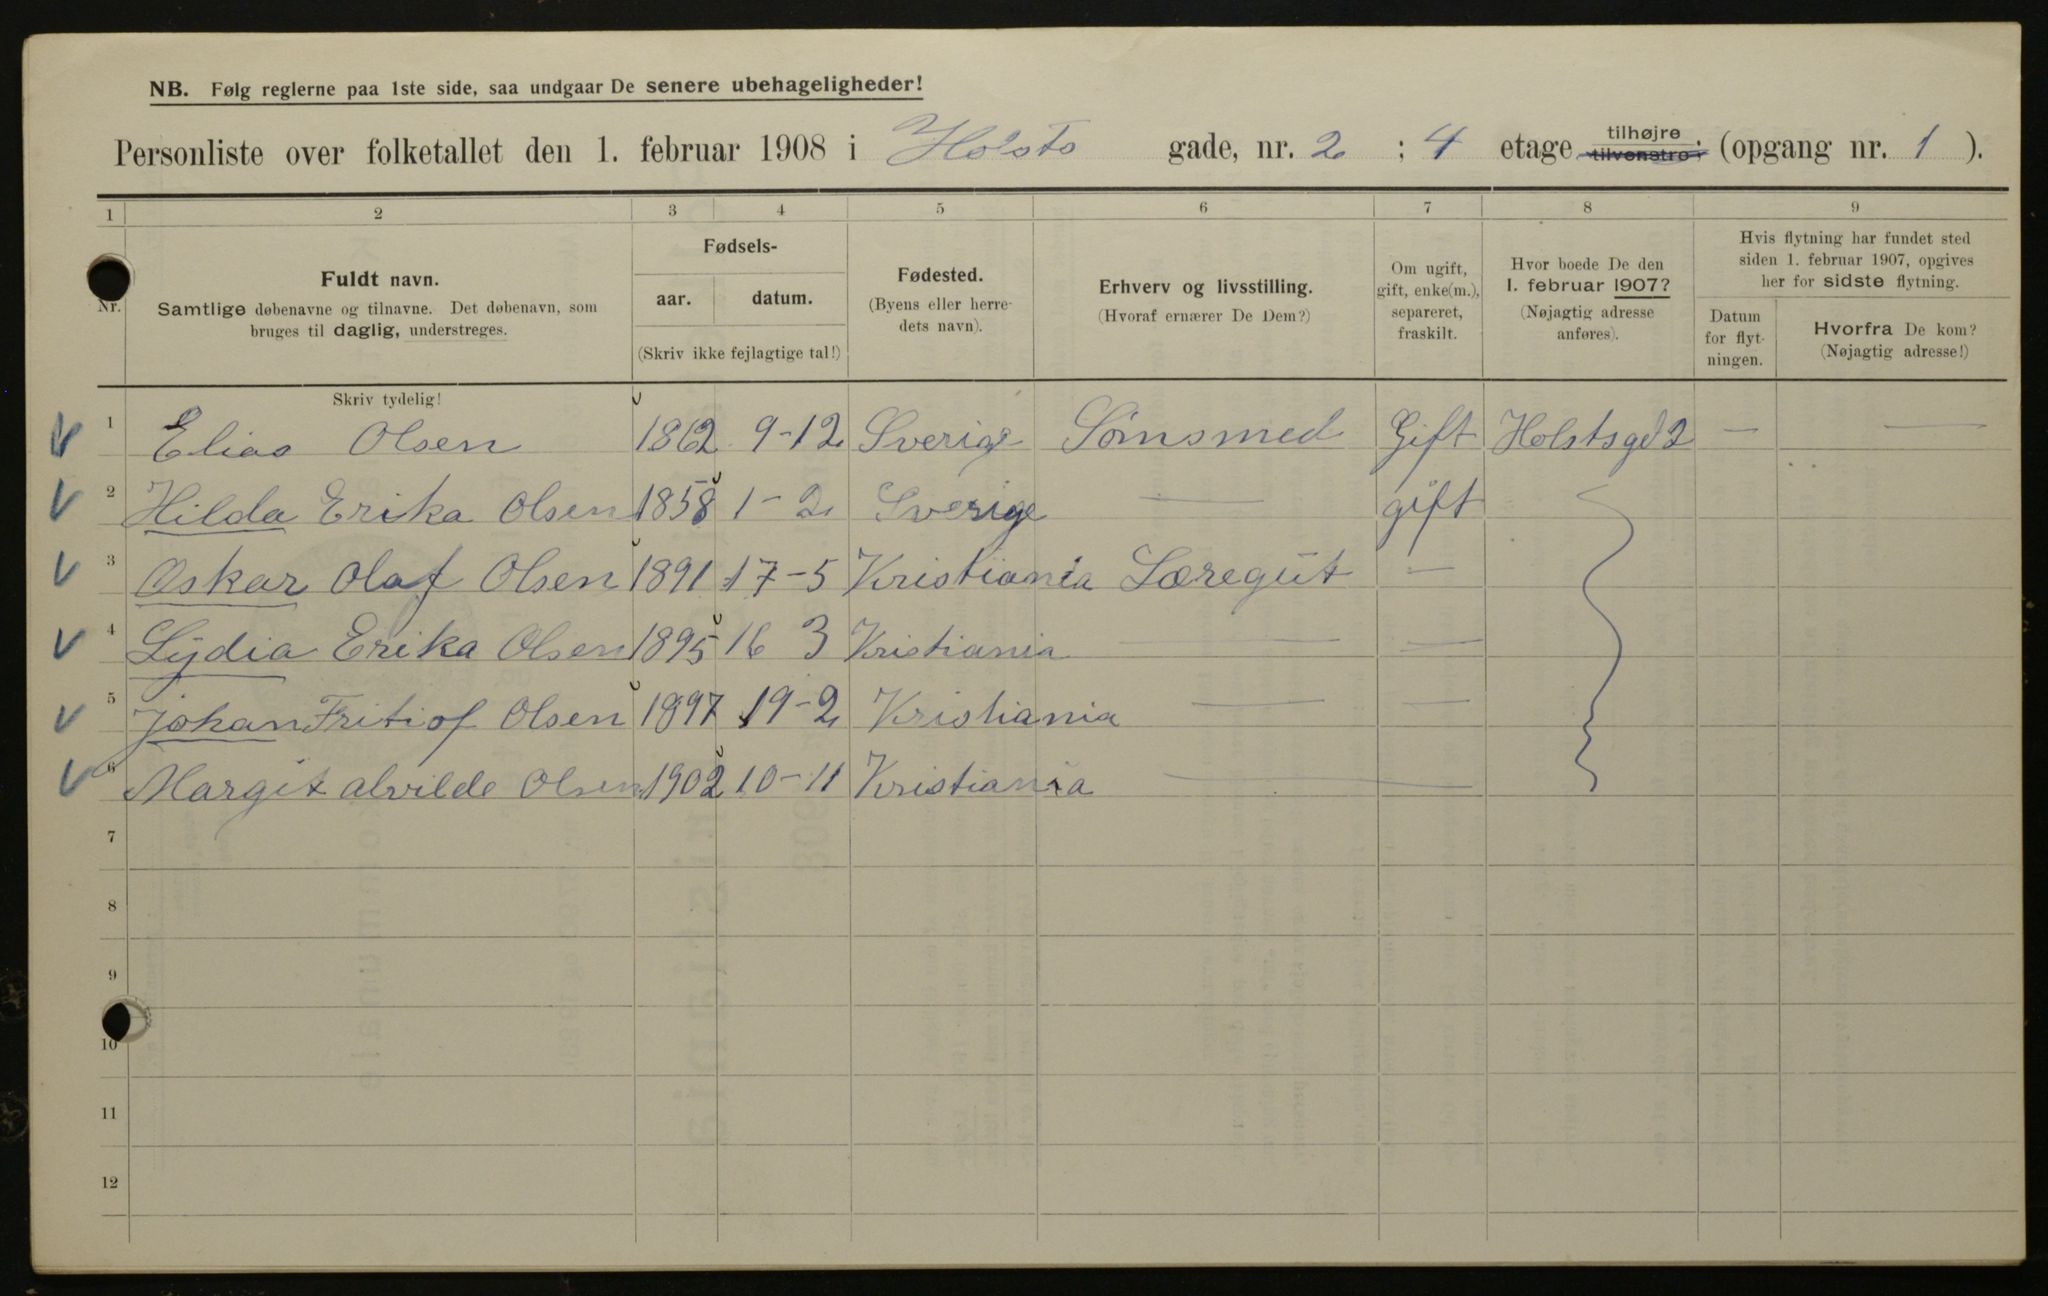 NB. Følg reglerne paa 1ste side, saa undgaar De senere ubehageligheder!
Personliste over folketallet den 1. februar 1908 i Holsts gade, nr. 2 ; 4 etage tilhøjre tilvenstre; (opgang nr. 1 ).
1 2 3 4 5 6 7 8 9
Nr.
Fuldt navn.
Samtlige døbenavne og tilnavne. Det døbenavn, som
bruges til daglig, understreges.
Fødsels-
aar. datum.
(Skriv ikke fejlagtige tal!)
Fødested.
(Byens eller herre-
dets navn).
Erhverv og livsstilling.
(Hvoraf ernærer De Dem?)
Om ugift,
gift, enke(m.),
separeret,
fraskilt.
Hvor boede De den
1. februar 1907?
(Nøjagtig adresse
anføres).
Hvis flytning har fundet sted
siden 1. februar 1907, opgives
her for sidste flytning.
Datum
for flyt-
ningen.
Hvorfra De kom?
(Nøjagtig adresse!)
Skriv tydelig!
1 Elias Olsen 1862 9-12 Sverige Sömsmed Gift Holstsgd 2 — —
2 Hilda Erika Olsen 1858 1-2 Sverige — gift
3 Oskar Olaf Olsen 1891 17-5 Kristiania Læregut —
4 Lydia Erika Olsen 1895 16 3 Kristiania — —
5 Johan Fritiof Olsen 1897 19-2 Kristiania — —
6 Margit alvilde Olsen 1902 10-11 Kristiania —
7
8
9
10
11
12